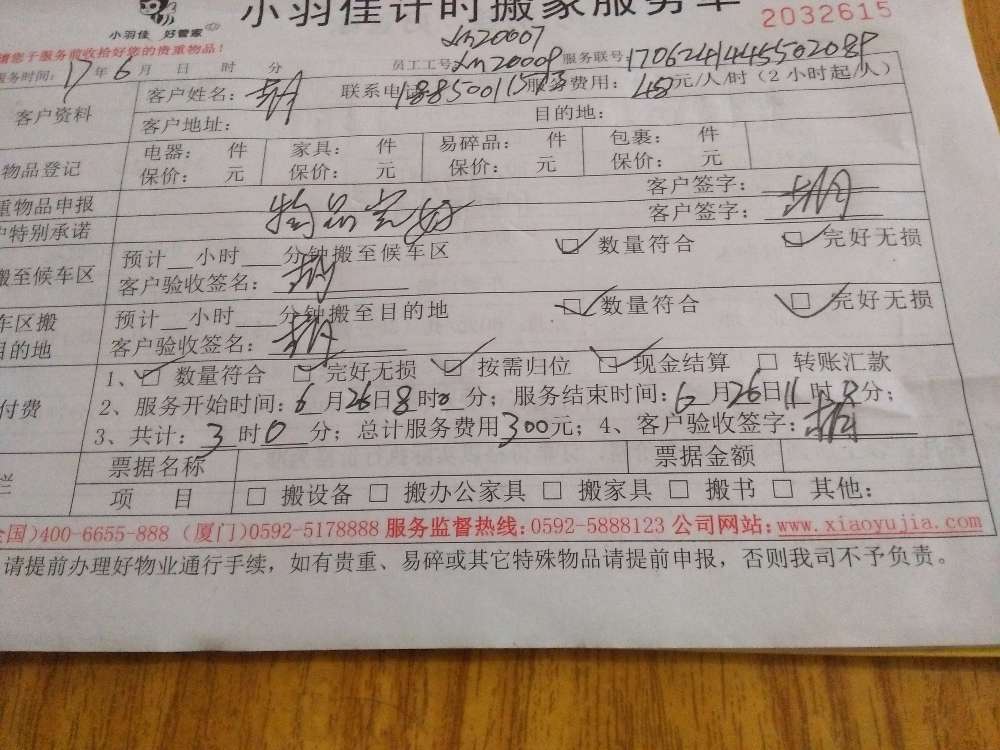 小羽佳 好管家
小羽佳计时搬家服务单
2032615
请您于服务前收拾好您的贵重物品!
服务时间: 17年6月 日 时 分 员工工号 服务联号:
客户资料
客户姓名: 联系电话 服务费用: 48元/人/时(2小时起/人)
客户地址: 目的地:
物品登记
电器: 件 家具: 件 易碎品: 件 包裹: 件
保价: 元 保价: 元 保价: 元 保价: 元
重物品申报 客户签字:
户特别承诺 物品完好 客户签字:
搬至候车区
预计__小时___分钟搬至候车区 数量符合 完好无损
客户验收签名:
车区搬
目的地
预计__小时___分钟搬至目的地 数量符合 完好无损
客户验收签名:
付费
1、 数量符合 完好无损 按需归位 现金结算 转账汇款
2、服务开始时间: 6月26日8时0分; 服务结束时间: 6月26日11时 分;
3、共计: 3时0分; 总计服务费用300元; 4、客户验收签字:
栏
票据名称 票据金额
项 目 搬设备 搬办公家具 搬家具 搬书 其他:
全国)400-6655-888 (厦门)0592-5178888 服务监督热线:0592-5888123 公司网站:www.xiaoyujia.com
请提前办理好物业通行手续,如有贵重、易碎或其它特殊物品请提前申报,否则我司不予负责。